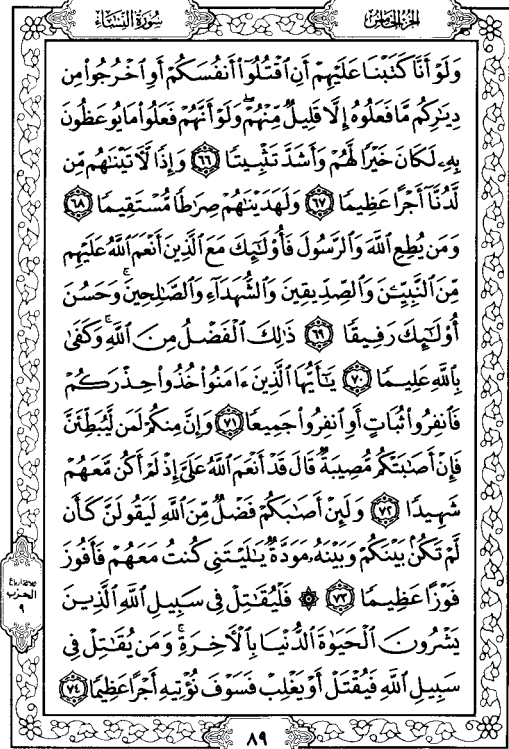 الجزء الخامس
سورة النساء
وَلَوْ أَنَّا كَتَبْنَا عَلَيْهِمْ أَنِ ٱقْتُلُوٓا۟ أَنفُسَكُمْ أَوِ ٱخْرُجُوا۟ مِن
دِيَـٰرِكُم مَّا فَعَلُوهُ إِلَّا قَلِيلٌ مِّنْهُمْ ۖ وَلَوْ أَنَّهُمْ فَعَلُوا۟ مَا يُوعَظُونَ
بِهِۦ لَكَانَ خَيْرًا لَّهُمْ وَأَشَدَّ تَثْبِيتًا ٦٦ وَإِذًا لَّـَٔاتَيْنَـٰهُم مِّن
لَّدُنَّآ أَجْرًا عَظِيمًا ٦٧ وَلَهَدَيْنَـٰهُمْ صِرَٰطًا مُّسْتَقِيمًا ٦٨
وَمَن يُطِعِ ٱللَّهَ وَٱلرَّسُولَ فَأُو۟لَـٰٓئِكَ مَعَ ٱلَّذِينَ أَنْعَمَ ٱللَّهُ عَلَيْهِم
مِّنَ ٱلنَّبِيِّـۧنَ وَٱلصِّدِّيقِينَ وَٱلشُّهَدَآءِ وَٱلصَّـٰلِحِينَ ۚ وَحَسُنَ
أُو۟لَـٰٓئِكَ رَفِيقًا ٦٩ ذَٰلِكَ ٱلْفَضْلُ مِنَ ٱللَّهِ ۚ وَكَفَىٰ
بِٱللَّهِ عَلِيمًا ٧٠ يَـٰٓأَيُّهَا ٱلَّذِينَ ءَامَنُوا۟ خُذُوا۟ حِذْرَكُمْ
فَٱنفِرُوا۟ ثُبَاتٍ أَوِ ٱنفِرُوا۟ جَمِيعًا ٧١ وَإِنَّ مِنكُمْ لَمَن لَّيُبَطِّئَنَّ
فَإِنْ أَصَـٰبَتْكُم مُّصِيبَةٌ قَالَ قَدْ أَنْعَمَ ٱللَّهُ عَلَىَّ إِذْ لَمْ أَكُن مَّعَهُمْ
شَهِيدًا ٧٢ وَلَئِنْ أَصَـٰبَكُمْ فَضْلٌ مِّنَ ٱللَّهِ لَيَقُولَنَّ كَأَن
لَّمْ تَكُنۢ بَيْنَكُمْ وَبَيْنَهُۥ مَوَدَّةٌ يَـٰلَيْتَنِى كُنتُ مَعَهُمْ فَأَفُوزَ
فَوْزًا عَظِيمًا ٧٣ ۞ فَلْيُقَـٰتِلْ فِى سَبِيلِ ٱللَّهِ ٱلَّذِينَ
يَشْرُونَ ٱلْحَيَوٰةَ ٱلدُّنْيَا بِٱلْـَٔاخِرَةِ ۚ وَمَن يُقَـٰتِلْ فِى
سَبِيلِ ٱللَّهِ فَيُقْتَلْ أَوْ يَغْلِبْ فَسَوْفَ نُؤْتِيهِ أَجْرًا عَظِيمًا ٧٤
ثلاثة أرباع
الحزب
٩
٨٩